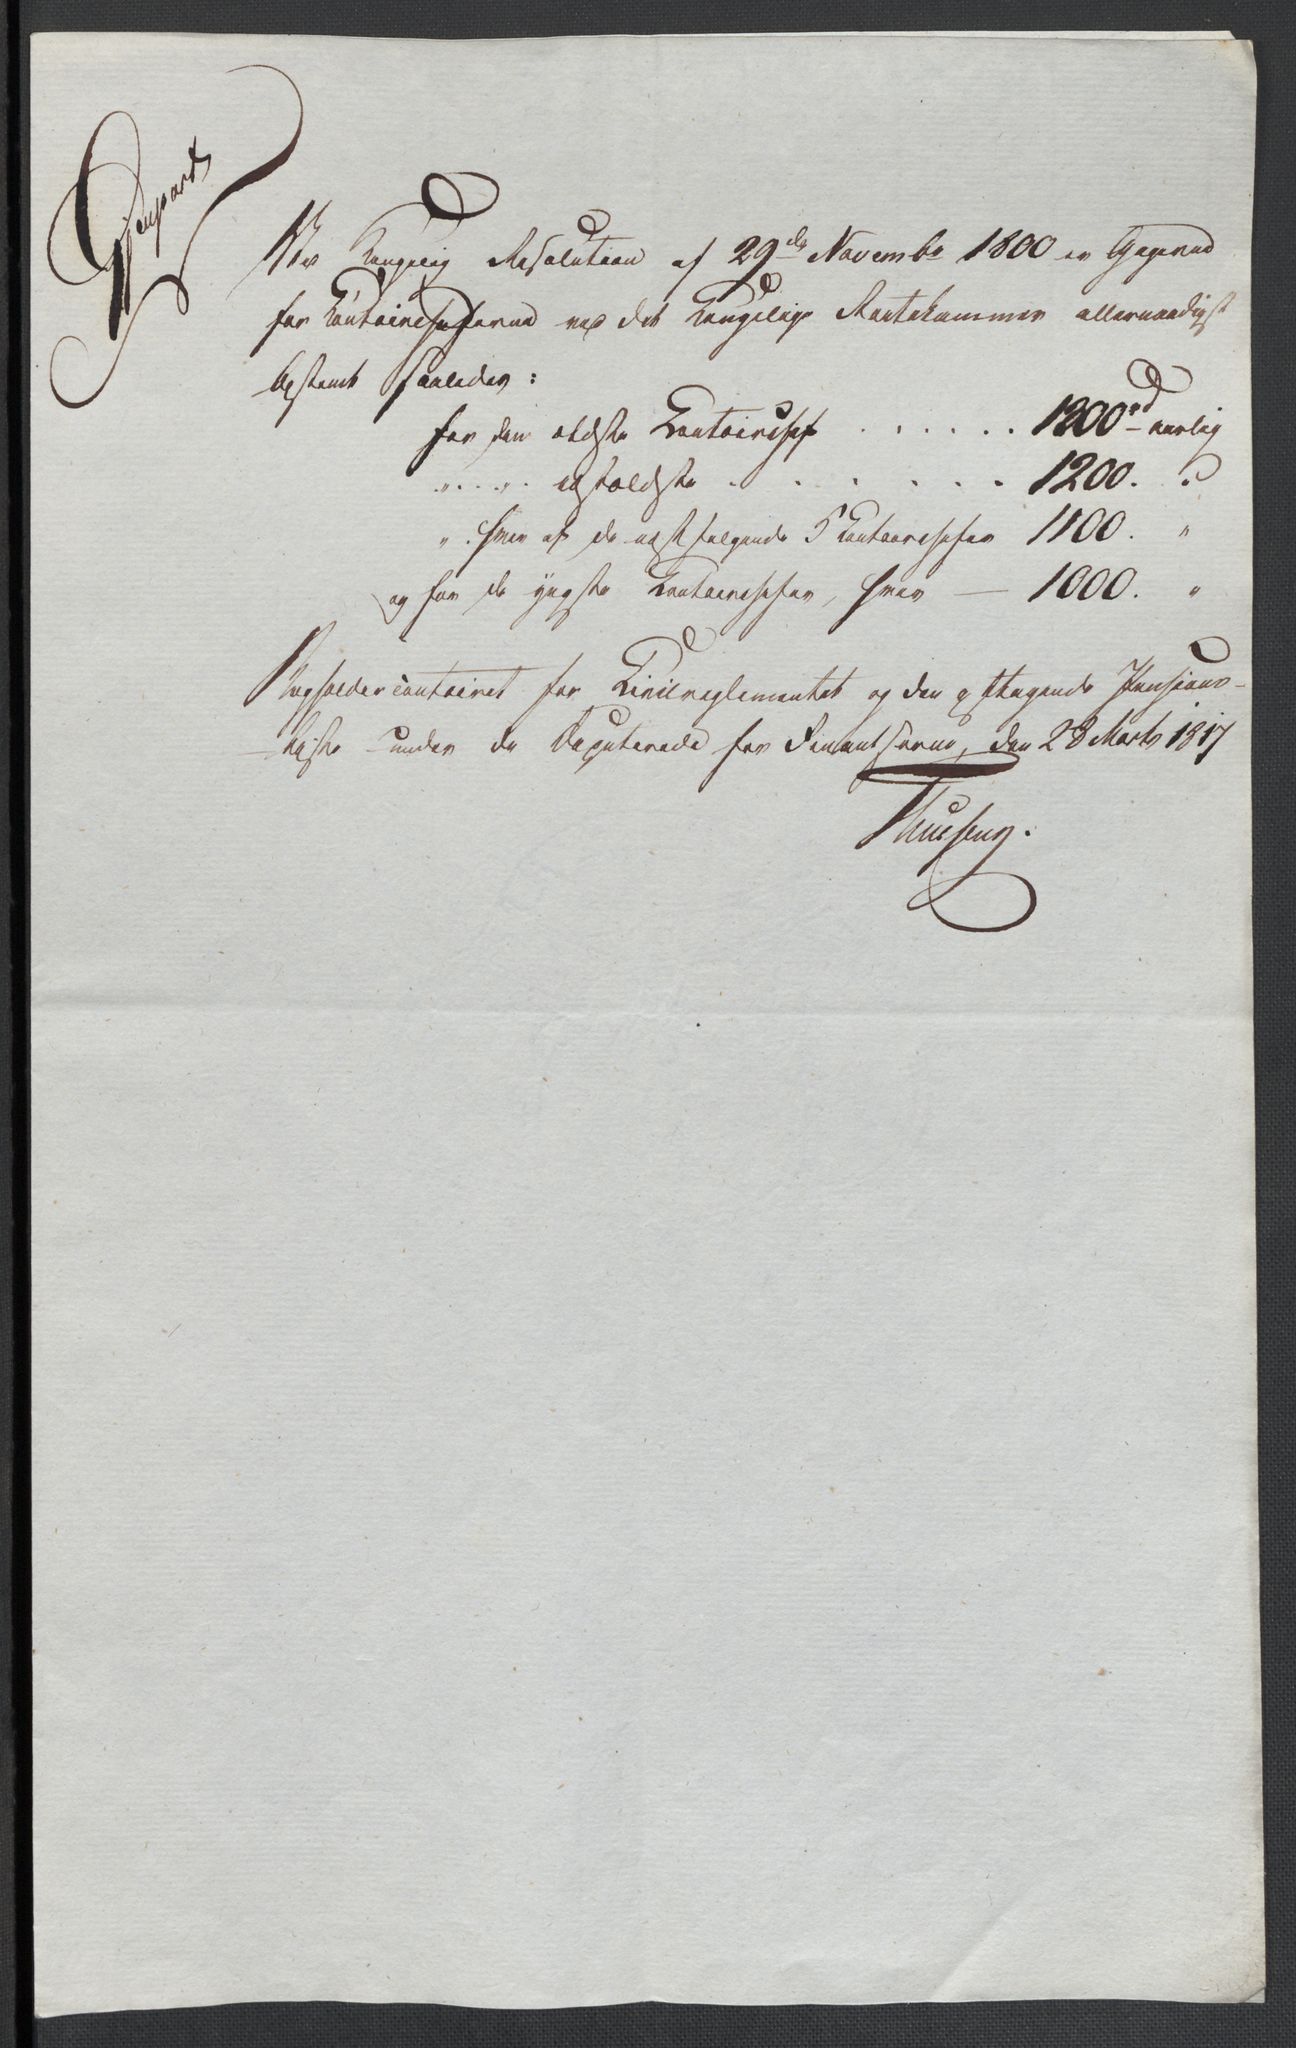 Gjenpart
Ved Kongelig Resolution af 29de Novembr 1800 er Gagerne
for Contoircheferne ved det Kongelige Rentekammer allernaadigst
bestemt saaledes:
for den ældste Contoirchef . . . . . . 1300rd aarlig
" . . . " . næstældste . . . . . . . 1200. "
" . hver af de næstfølgende 5 Contoirchefer 1100. "
og for de yngste Contoirchefer, hver — 1000. "
Bogholdercontoiret for Civilreglementet og den Pensions-
Liste under de Deputerede for Finantserne, den 28 Marts 1817
Thuesen.